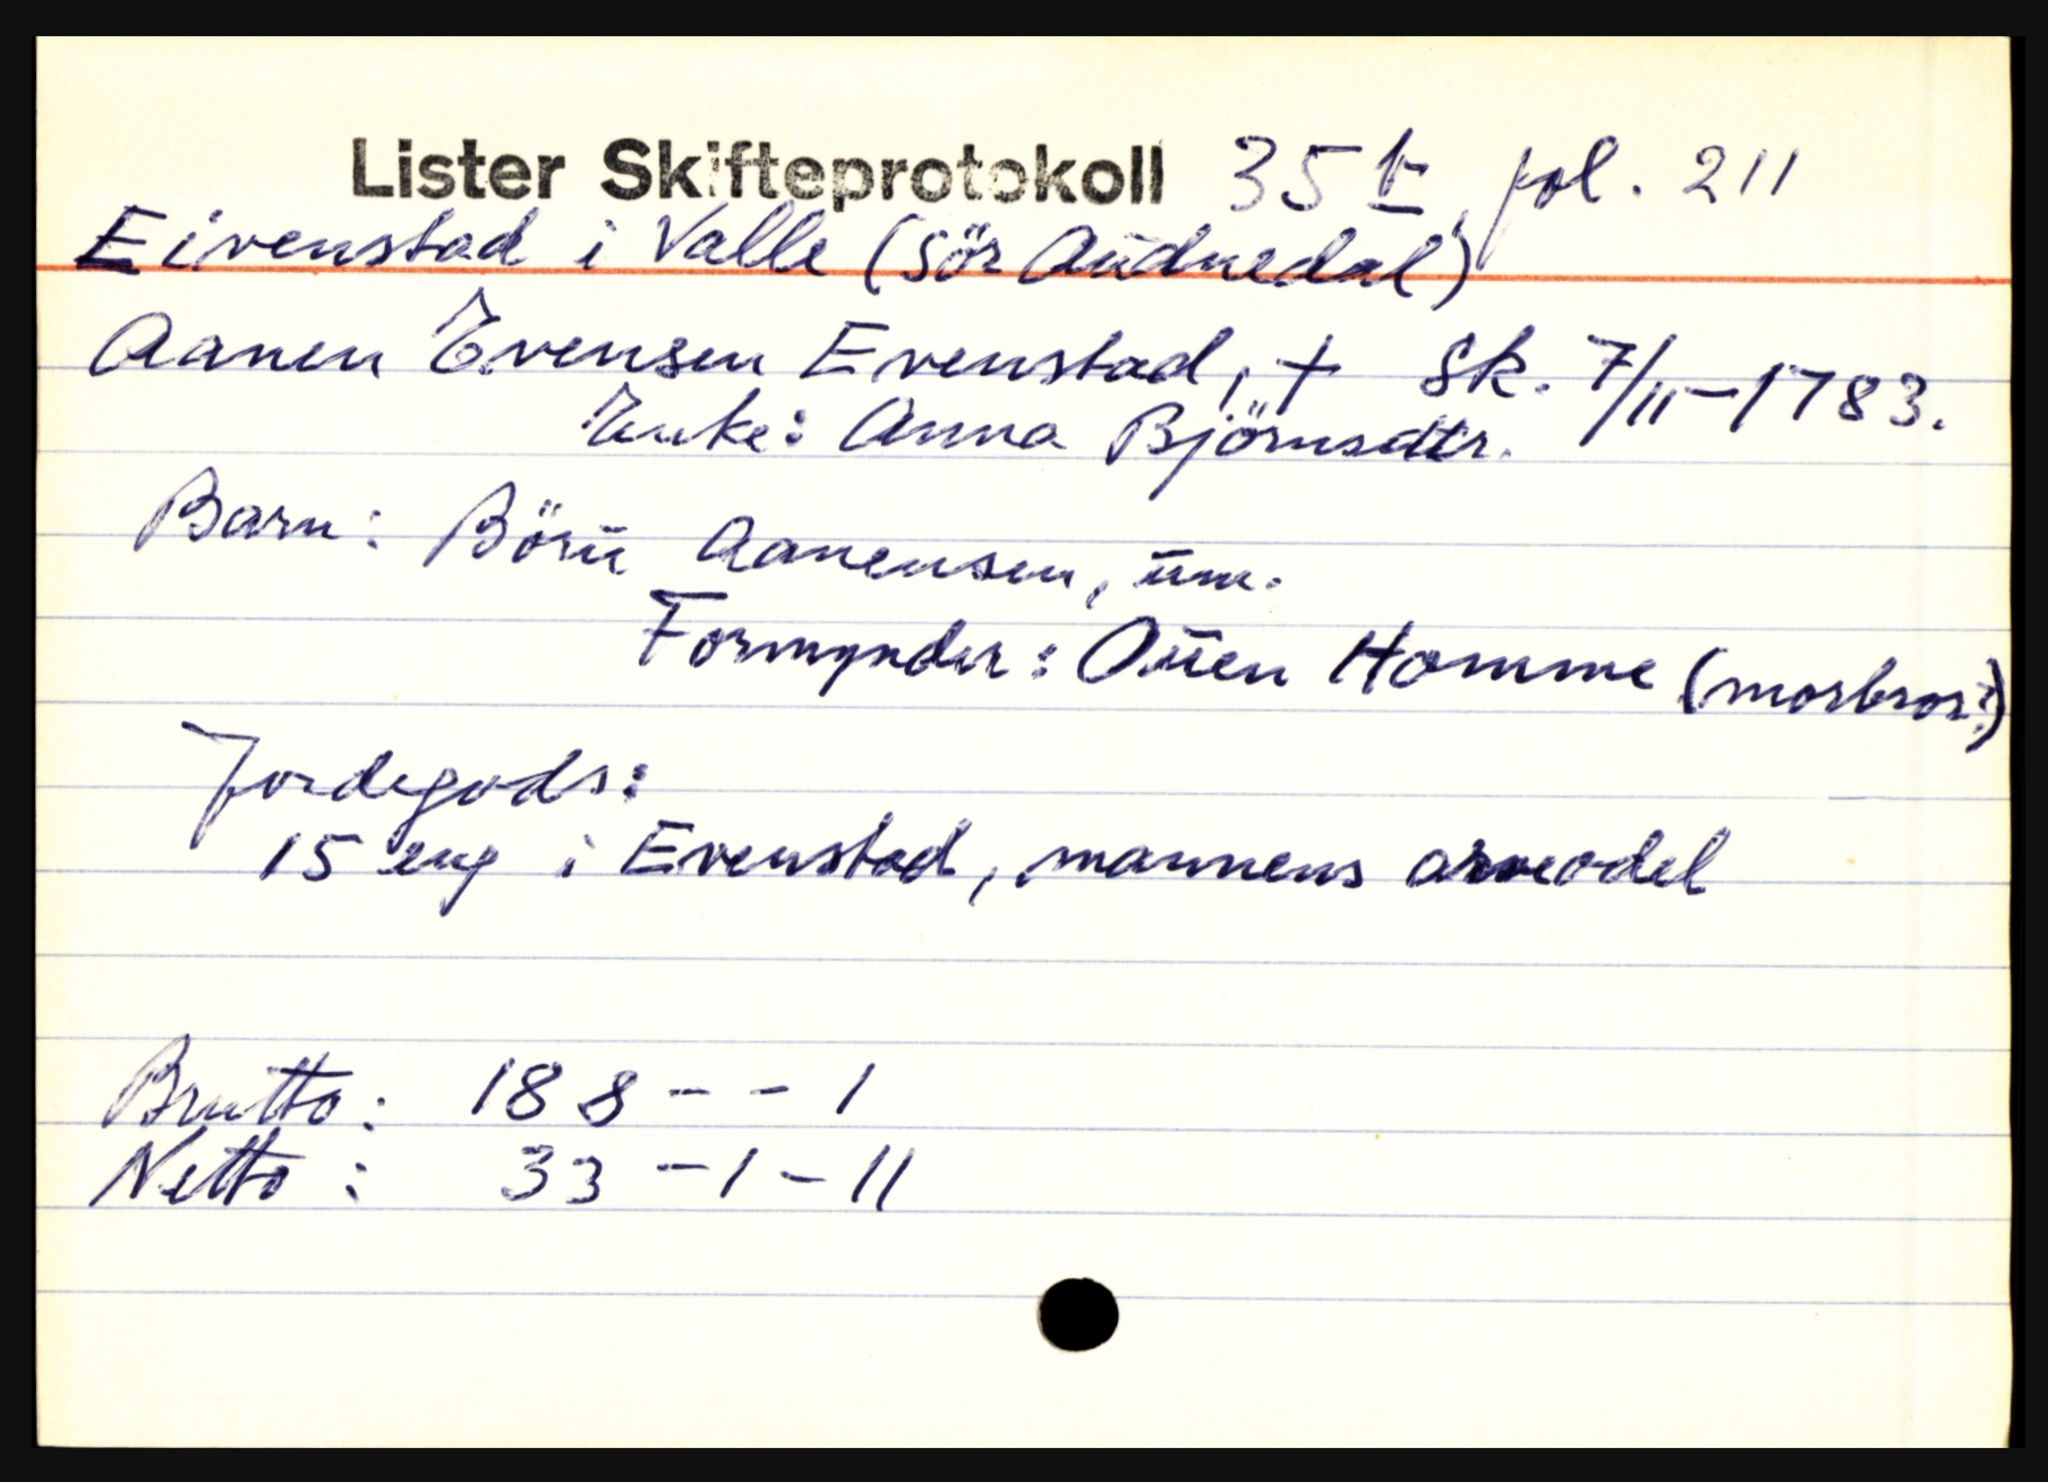 Lister Skifteprotokoll 35 b, fol. 211
Eivenstad i Valle (Sör Audnedal)
Aanen Evensen Evenstad, + Sk. 7/11-1783.
Enke: Anna Björnsdtr.
Barn: Börü Aanensen, um.
Formynder: Ouen Homme (morbror?)
Jordegods:
15 eng i Evenstad, mannens arveodel
Brutto: 188 - - 1
Netto: 33 - 1 - 11